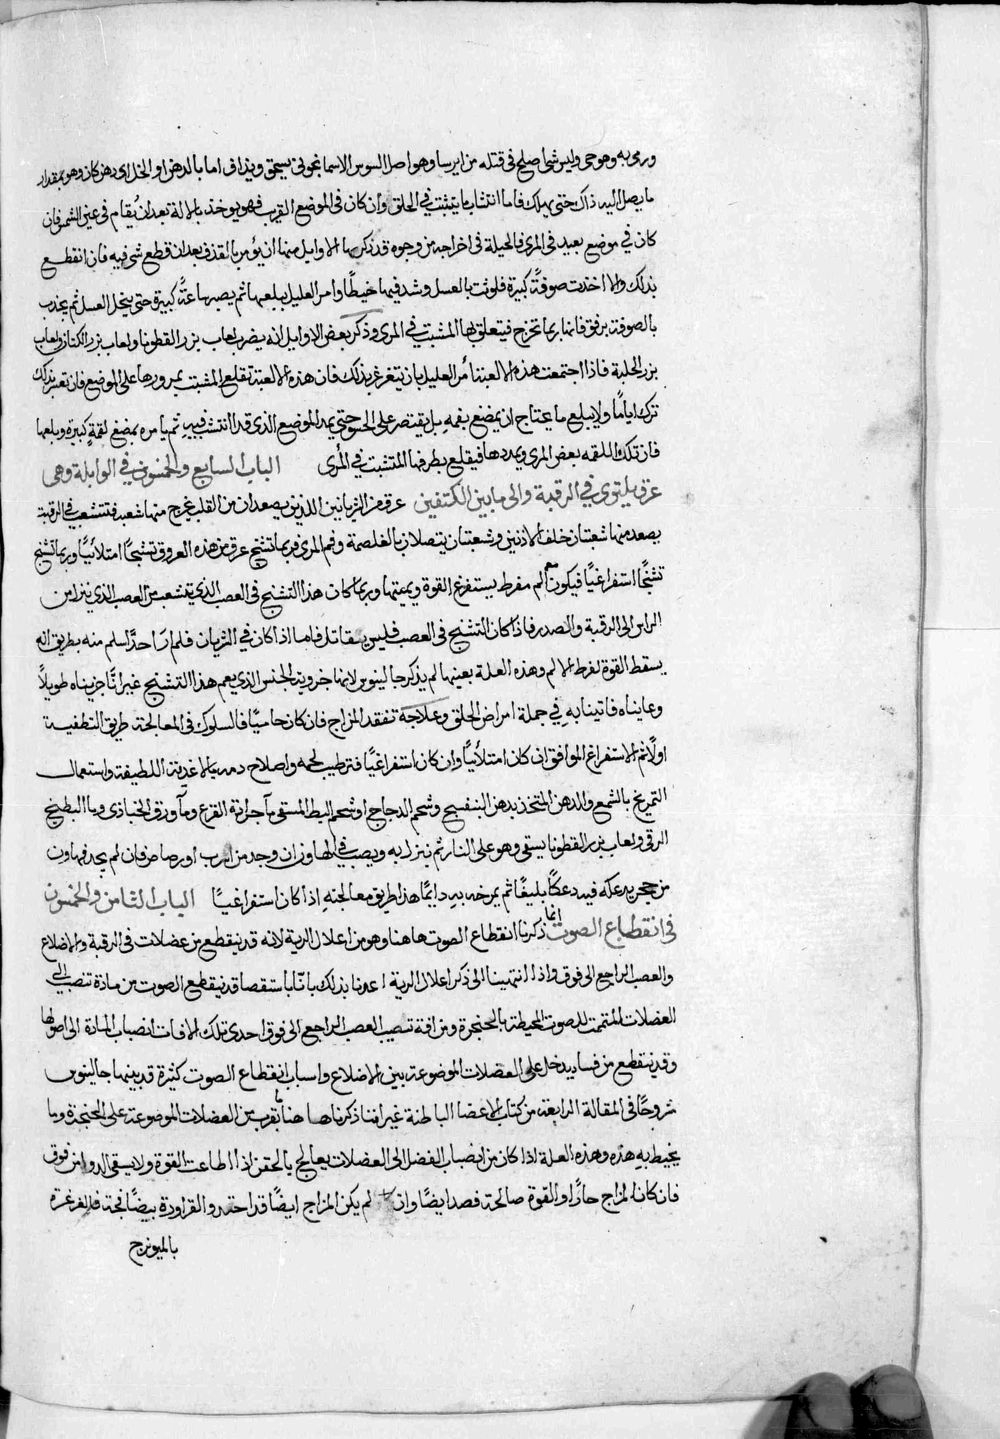 ورمى به وهو حى وليس شى اصلح فى قتله من ايرسا وهو اصل السوس الاسمانجونى يسحق ويذاف اما بالدهن او الخل اى دهن كان وهو بمقدار
ما يصل اليه ذاك حتى يهلك فاما انتشاب ما يتشبث فى الحلق وان كان فى الموضع القريب فهو يوخذ بالالة بعد ان يقام فى عين الشمس فان
كان فى موضع بعيد فى المرى فالحيلة فى اخراجه من وجوه قد ذكرها الاوايل منها ان يؤمر بالقذف بعد ان قطع شى فيه فان انقطع
بذلك والا اخذت صوفةً كبيرة فلوثت بالعسل وشد فيها خيطًا وامر العليل ببلعها ثم يصبر ساعةً كبيرة حتى ينحل العسل ثم يجذب
بالصوفة برفق فانها ربما تخرج فيتعلق بها المتشبث فى المرى وذكر بعض الاوايل انه يضرب لعاب بزر القطونا ولعاب بزر الكتان ولعاب
بزر الحلبة فاذا اجتمعت هذه الالعبة أمر العليل بان يتغرغر بذلك فان هذه الالعبة تقلع المتشبث بمرورها على الموضع فان تعسر بذلك
ترك اياما ولا يبلع ما يحتاج ان يمضغ بفمه بل يقتصر على الحسو حتى يمد الموضع الذى قد انتشب فيه ثم يامره بمضغ لقمةٍ كبيرة وبلعها
فان تلك اللقمه بعض المرى ويمددها فيقلع بطرفها المتشبث فى المرى الباب السابع والخمسون فى الوابلة وهى
عرق يلتوى فى الرقبة والى ما بين الكتفين عرق من الشريانين اللذين يصعدان من القلب يخرج منها شعبه فتتشعب فى الرقبة
يصعد منها شعبتان خلف الاذنين وشعبتان يتصلان بالغلصمة وفم المرى فربما تشنج عرق من هذه العروق تشنجًا امتلائيًا وربما تشنج
تشنجًا استفراغيًا فيكون معه الم مفرط يستفرغ القوة ويميتها وربما كان هذا التشنج فى العصب الذى يتشعب من العصب الذى ينزل من
الراس الى الرقبة والصدر فاذا كان التشنج فى العصب فليس بقاتل فاما اذا كان فى الشريان فلم ار احدًا سلم منه بطريق انه
يسقط القوة لفرط الالم وهذه العلة بعينها لم يذكر جالينوس لانها جزوية الجنس الذى يعم هذا التشنج غير انّا جربناه طويلاً
وعايناه فاتينا به فى جملة امراض الحلق وعلاجه تفقد المزاج فان كان حاميًا فالسلوك فى المعالجة طريق التطفية
اولاً ثم الاستفراغ الموافق ان كان امتلائيًا وان كان استفراغيًا فترطيب لحمه واصلاح دمه بالاغذية اللطيفة واستعمال
التمريخ بالشمع والدهن المتخذ بدهن البنفسج وشحم الدجاج او شحم البط المسقى مآ جرادة القرع ومآ ورق الخبازى وما البطيخ
الرقى ولعاب بزر القطونا يسقى وهو على النار ثم ينزل به ويصب فى الهاون ان وجد من اسرب او رصاص فان لم يجد فهاون
من حجر يدعكه فيه دعكًا بليغًا ثم يمرخه به دايمًا هذا طريق معالجته اذا كان استفراغيًا الباب الثامن والخمسون
فى انقطاع الصوت انما ذكرنا انقطاع الصوت هاهنا وهو من اعلال الرية لانه قد ينقطع من عضلات فى الرقبة والاضلاع
والعصب الراجع الى فوق واذا انتهينا الى ذكر اعلال الرية اعدنا بذلك بابًا باستقصا قد ينقطع الصوت من مادة تنصب الى
العضلات المتممة للصوت المحيطة بالحنجرة ومن افة تصيب العصب الراجع الى فوق احدى تلك الافات انصباب المادة الى اصولها
وقد ينقطع من فساد يدخل على العضلات الموضوعة بين الاضلاع واسباب انقطاع الصوت كثيرة قد بينها جالينوس
شروحًا فى المقالة الرابعة من كتاب الاعضا الباطنة غير اننا ذكرنا هاهنا ما يقرب من العضلات الموضوعة على الحنجرة وما
يحيط به هذه وهذه العلة اذا كان من انصباب الفضل الى العضلات يعالج بالحقن اذا اطاعت القوة ولا يسقى الدوا من فوق
فان كان المزاج حارًا والقوة صالحة فصد ايضًا وان لم يكن المزاج ايضًا قد احتد والقارورة بيضا نجة فالغرغرة
بالميوبزج